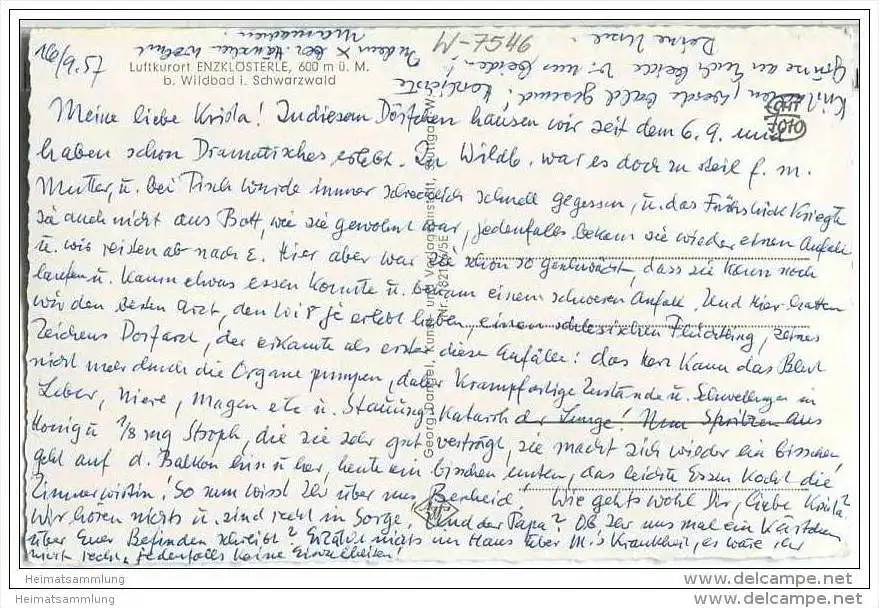 16/9.57
Luftkurort ENZKLÖSTERLE, 600 m ü. M.
b. Wildbad i. Schwarzwald
W-7546
Meine liebe Krista! In diesem Dörfchen hausen wir seit dem 6.9. und
haben schon Dramatisches erlebt. In Wildb. war es doch zu steil f. m.
Mutter, u. bei Tisch wurde immer schrecklich schnell gegessen, u. das Frühstück kriegte
sie auch nicht aus Bett, wie sie gewohnt war, jedenfalls bekam sie wieder einen Anfall
u. wir reisten ab nach E. Hier aber war sie schon so geschwächt, dass sie kaum noch
laufen u. kaum etwas essen konnte u. bekam einen schweren Anfall. Und hier hatten
wir den besten Arzt, den wir je erlebt haben, einen schlesischen Flüchtling, seines
Zeichens Dorfarzt, der erkannte als erster diese Anfälle: das Herz kann das Blut
nicht mehr durch die Organe pumpen, daher krampfartige Zustände u. Schwellungen in
Leber, Niere, Magen etc u. Stauungskatarrh der Lunge! Nun Spritzen aus
Honig u. 1/8 mg Stroph, die sie sehr gut verträgt, sie macht sich wieder ein bisschen
geht auf d. Balkon hin u. her, heute ein bisschen unten, das leichte Essen kocht die
Zimmerwirtin! So nun wisst Ihr über uns Bescheid! Wie gehts wohl Dir, liebe Krista?
Wir hören nichts u. sind recht in Sorge. Und der Papa? Ob Ihr uns mal ein Kärtchen
über Euer Befinden schreibt? Erzählt nichts im Haus über M.'s Krankheit, es wäre ihr
nicht recht, jedenfalls keine Einzelheiten!
werde bald gesund!
Grüsse an Euch beide v. uns beiden!
Deine
Georg Dangel, Kunst- und Verlagsanstalt, Stuttgart-W
Heimatsammlung
Heimatsammlung
http://www.delcampe.net
http://www.delcampe.net